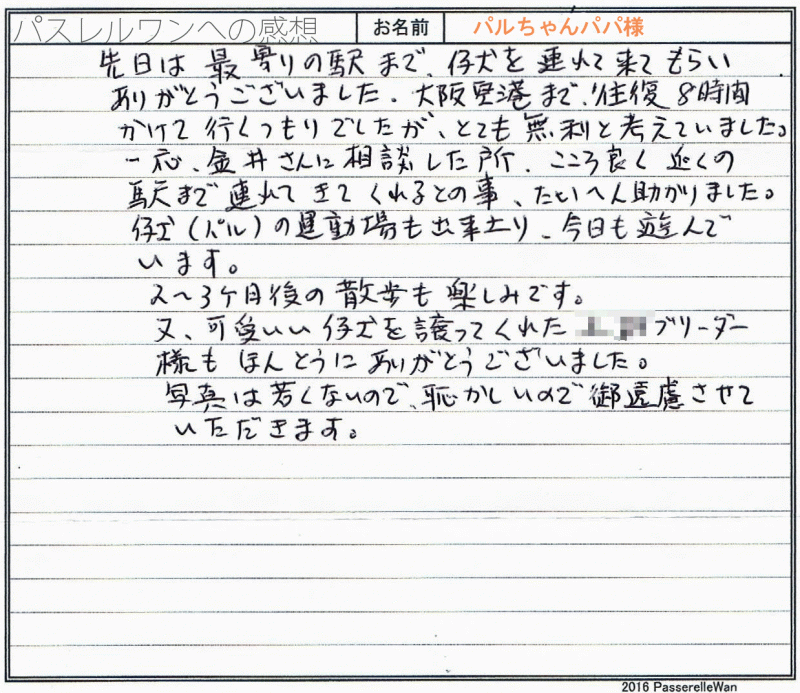 パスレルワンへの感想 お名前 パルちゃんパパ様
先日は最寄りの駅まで、仔犬を連れて来てもらい
ありがとうございました。大阪空港まで、往復8時間
かけて行くつもりでしたが、とても無利と考えていました。
一応、金井さんに相談した所、こころ良く近くの
駅まで連れてきてくれるとの事、たいへん助かりました。
仔犬(パル)の運動場も出来上り、今日も遊んで
います。
2〜3ケ月後の散歩も楽しみです。
又、可愛いい仔犬を譲ってくれた ブリーダー
様もほんとうにありがとうございました。
写真は若くないので、恥かしいので御遠慮させて
いただきます。
2016 PasserelleWan